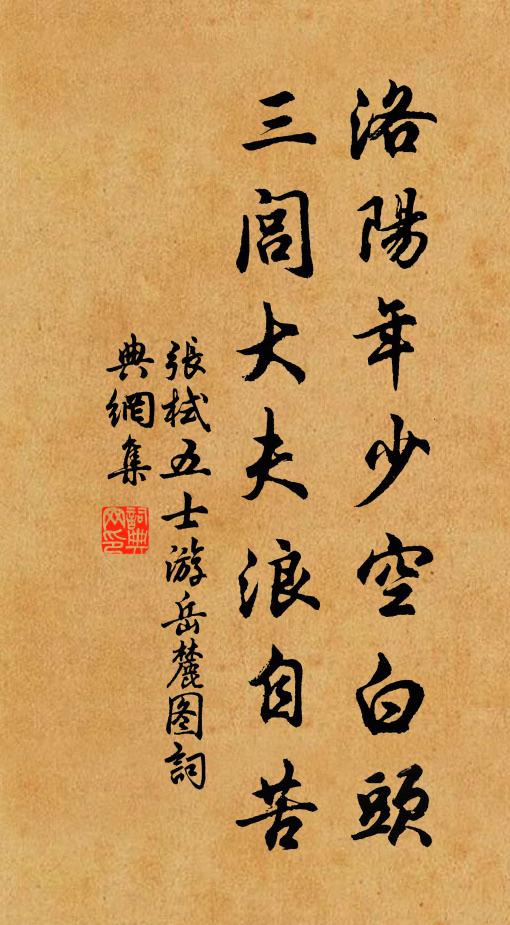 洛陽年少空白頭
三閭大夫浪自苦
張栻五士游岳麓图詞
典網集
詞典網印